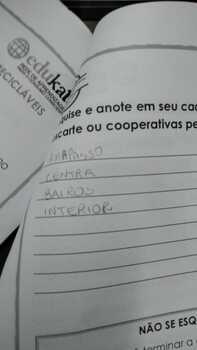 edukat
RECICLÁVEIS
quise e anote em seu cad
scarte ou cooperativas pe
CENTRA
BAIROS
INTERIOR
NÃO SE ESQ
terminar a